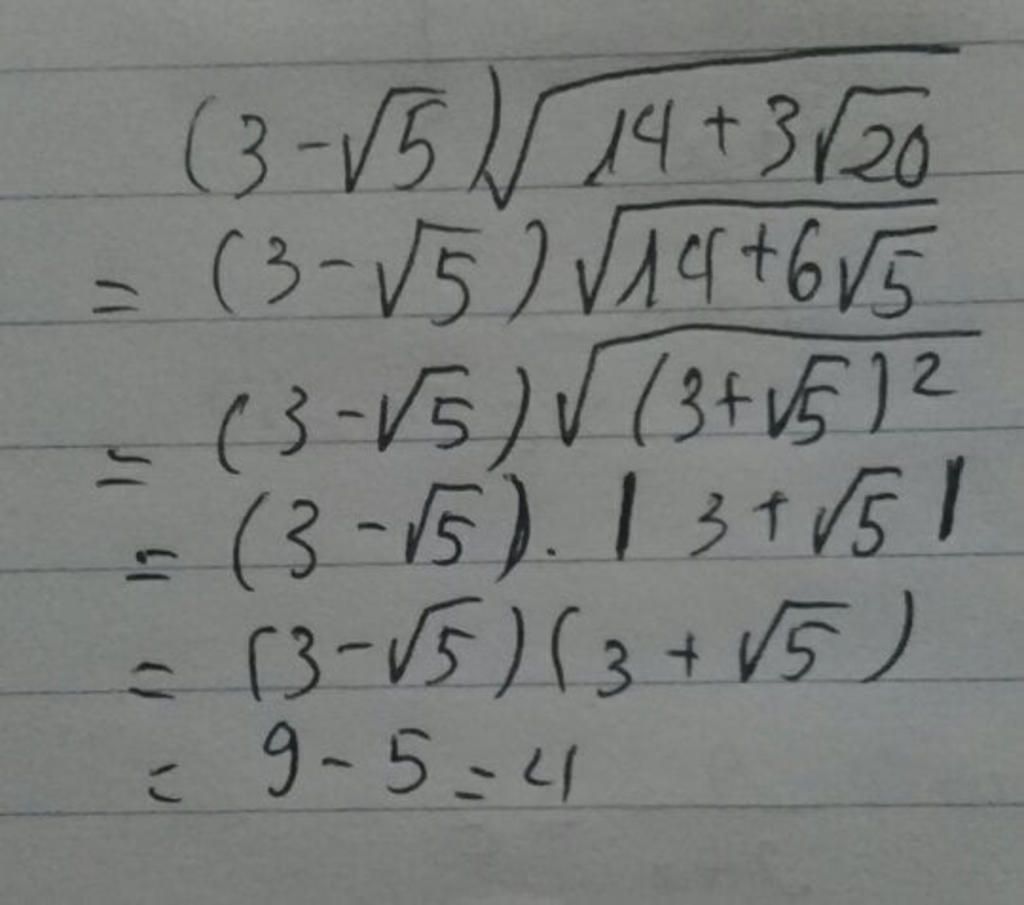 (3-√5)√(14+3√20)
= (3-√5)√(14+6√5)
= (3-√5)√((3+√5)²)
= (3-√5).|3+√5|
= (3-√5)(3+√5)
= 9-5=4